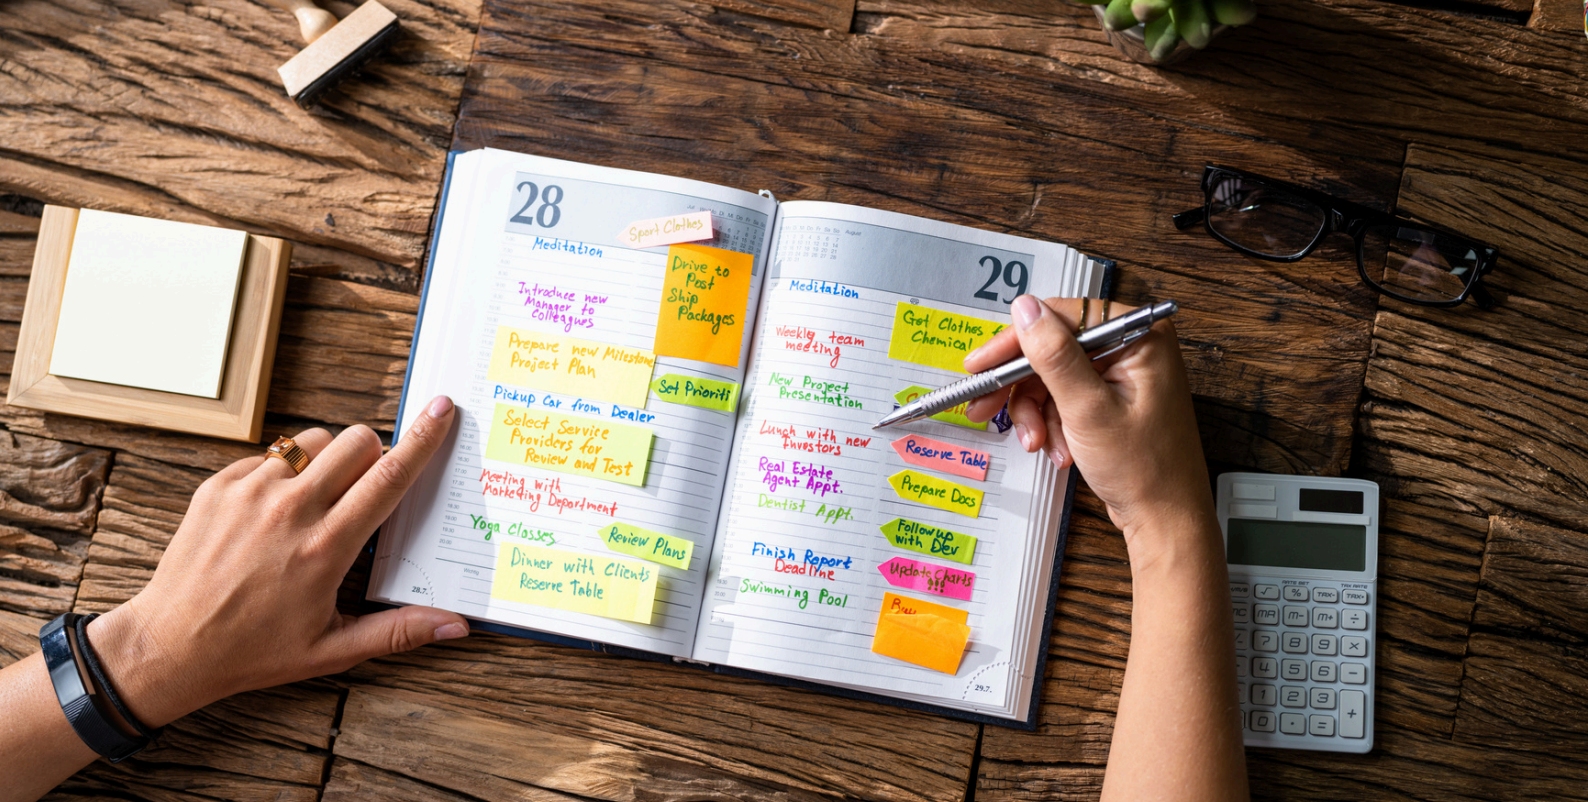 28
Sport Clothes
Meditation
Drive to
Post
Ship
Packages
Introduce new
Manager to
Colleagues
Prepare new Milestone
Project Plan
Set Prioriti
Pickup Car from Dealer
Select Service
Providers for
Review and Test
Meeting with
Marketing Department
Yoga Classes
Review Plans
Dinner with Clients
Reserve Table
28.7.
August
29
Meditation
Get Clothes
Chemical
Weekly team
meeting
New Project
Presentation
Lunch with new
Investors
Reserve Table
Real Estate
Agent Appt.
Prepare Docs
Dentist Appt.
Follow up
with Dev
Finish Report
Deadline
Update Charts
!!!
Swimming Pool
29.7.
√
%
TAX-
TAX+
MR
M-
M+
÷
7
8
9
×
4
5
6
−
1
2
3
+
0
·
=